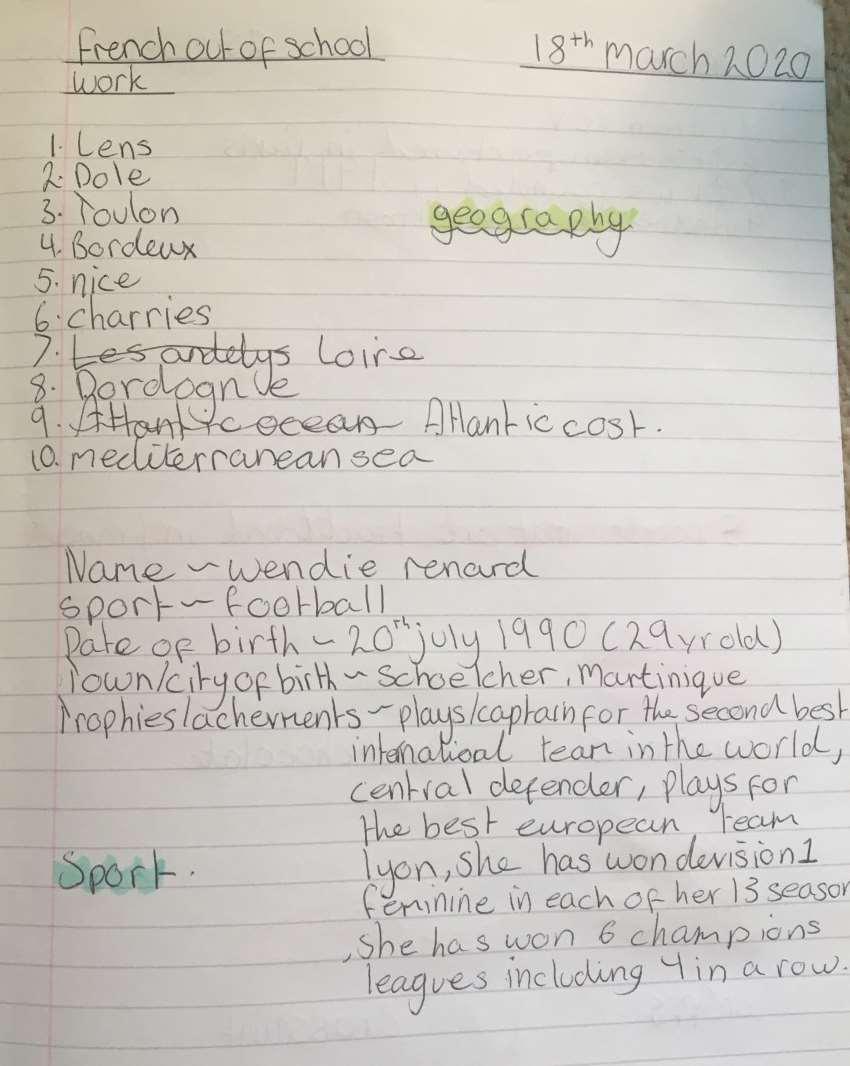 French out of school
work
18th march 2020
1. Lens
2. Dole
3. Toulon
4. Bordeux
5. nice
6. charries
7. Les andelys Loire
8. Dordogne
9. Atlantic ocean Atlantic cost.
10. mediterranean sea
geography
Name ~ wendie renard
sport ~ football
Date of birth ~ 20th july 1990 (29yr old)
Town/city of birth ~ Schoelcher, Martinique
Trophies/achevments ~ plays/captain for the second best
internatioal team in the world,
central defender, plays for
the best european team
lyon, she has won devision 1
feminine in each of her 13 season
, she has won 6 champions
leagues including 4 in a row.
Sport.